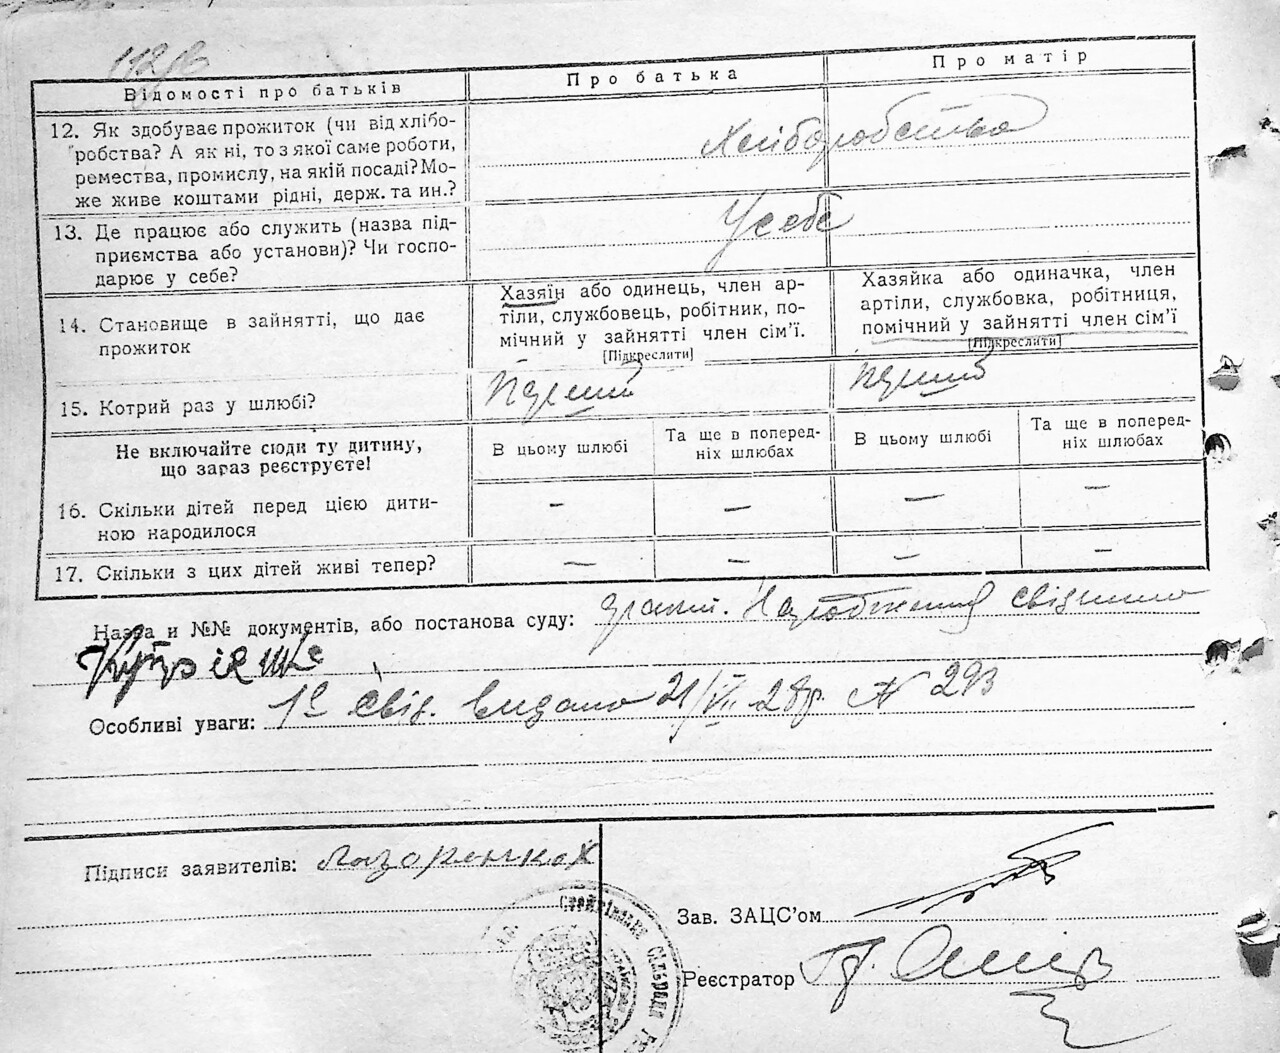 112/в
Відомості про батьків
Про батька
Про матір
12. Як здобуває прожиток (чи від хлібо-
робства? А як ні, то з якої саме роботи,
ремества, промислу, на якій посаді? Мо-
же живе коштами рідні, держ. та ин.?
Хліборобство
13. Де працює або служить (назва під-
приємства або установи)? Чи госпо-
дарює у себе?
У себе
14. Становище в зайнятті, що дає
прожиток
Хазяїн або одинець, член ар-
тіли, службовець, робітник, по-
мічний у зайнятті член сім'ї.
[Підкреслити]
Хазяйка або одиначка, член
артіли, службовка, робітниця,
помічний у зайнятті член сім'ї
[Підкреслити]
15. Котрий раз у шлюбі?
Перший
Перший
Не включайте сюди ту дитину,
що зараз реєструєте!
В цьому шлюбі
Та ще в поперед-
ніх шлюбах
В цьому шлюбі
Та ще в поперед-
ніх шлюбах
16. Скільки дітей перед цією дити-
ною народилося
— — — —
17. Скільки з цих дітей живі тепер?
— — — —
Назва и №№ документів, або постанова суду:
Народження
Особливі уваги: 1е свід. видано 21/VII 28р. N 293
Підписи заявителів:
Зав. ЗАЦС'ом
Реєстратор